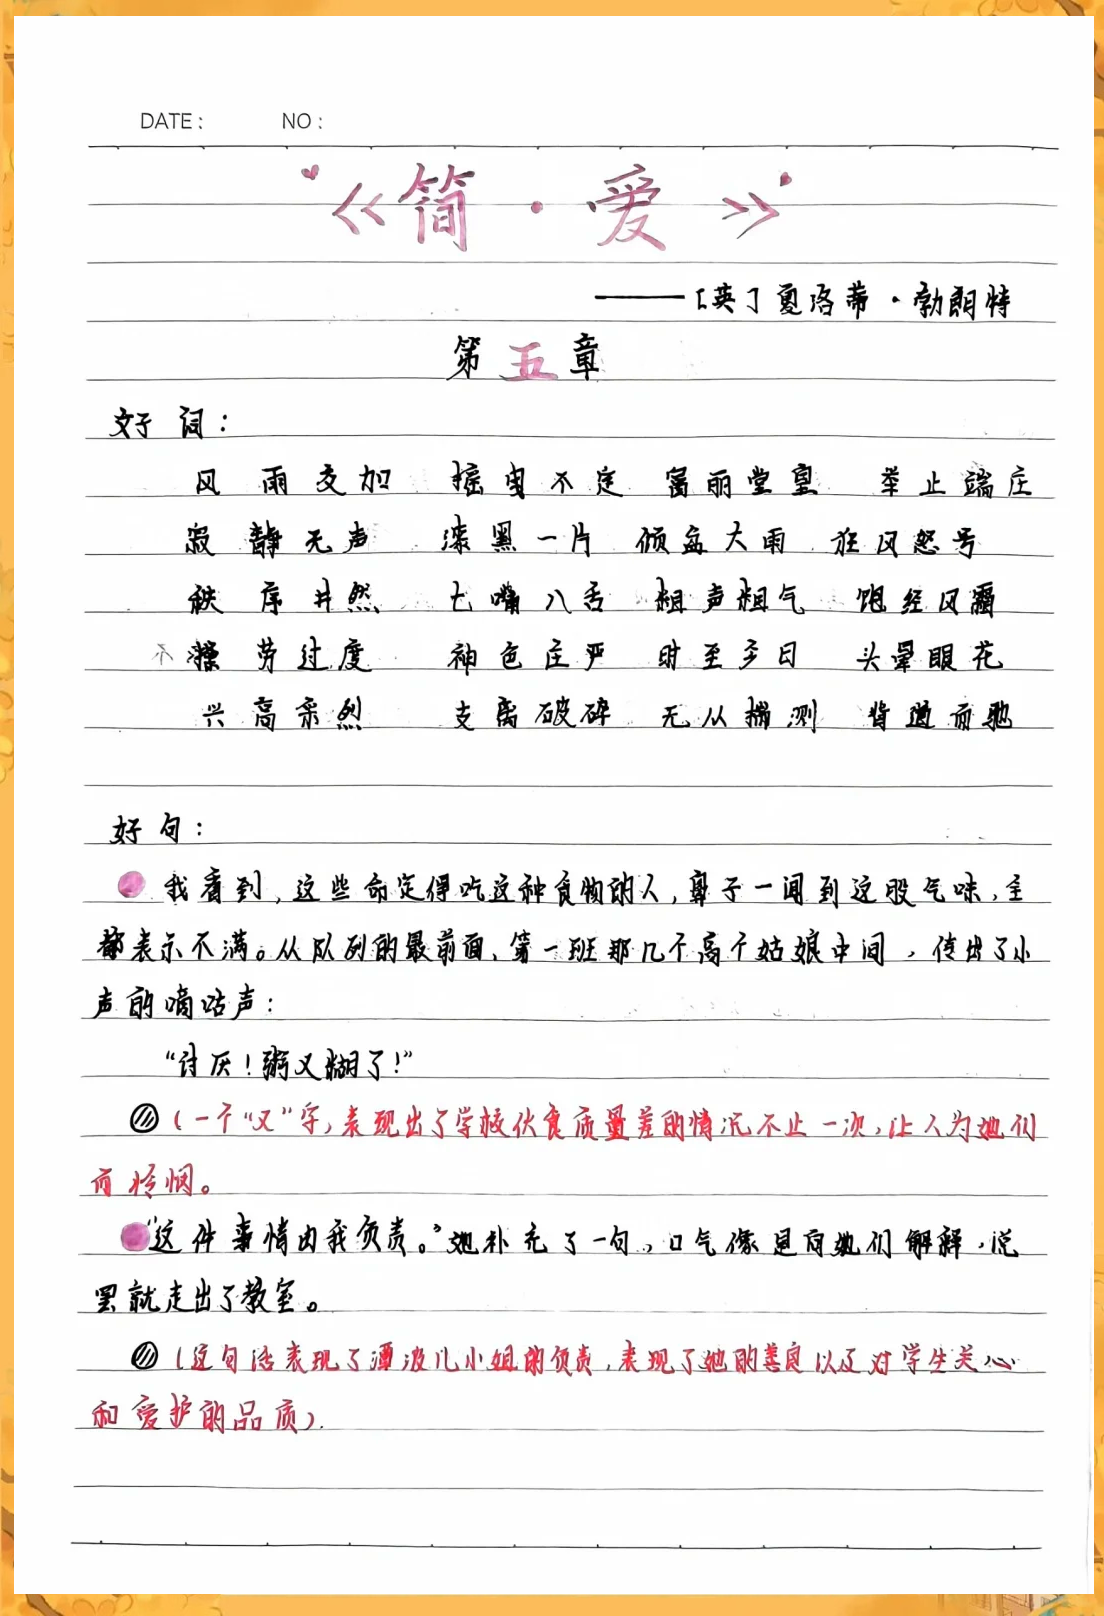 DATE: NO:
《简·爱》
——[英]夏洛蒂·勃朗特
第五章
好词:
风雨交加 摇曳不定 富丽堂皇 举止端庄
寂静无声 漆黑一片 倾盆大雨 狂风怒号
秩序井然 七嘴八舌 粗声粗气 饱经风霜
操劳过度 神色庄严 时至今日 头晕眼花
兴高采烈 支离破碎 无从揣测 背道而驰
好句:
我看到,这些命定得吃这种食物的人,鼻子一闻到这股气味,全
都表示不满。从队列的最前面、第一班那几个高个姑娘中间,传出了小
声的嘀咕声:
“讨厌!粥又糊了!”
(一个“又”字,表现出了学校伙食质量差的情况不止一次,让人为她们
而怜悯。
“这件事情由我负责。”她补充了一句,口气像是向她们解释,说
罢就走出了教室。
(这句话表现了潭波儿小姐的负责,表现了她的善良以及对学生关心
和爱护的品质).